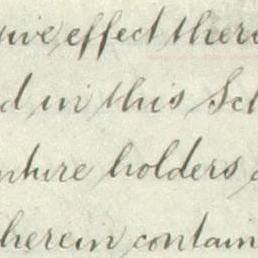 ive effect there
d in this Sch
nture holders
herein contain